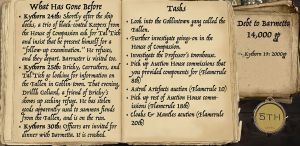 What Has Gone Before
• Kythorn 24th: Shortly after the ship
docks, a trio of black cloaked Keepers from the
House of Compassion ask for Tal Tich
and insist that he present himself for a
"follow-up examination." He refuses,
and they depart. Barnuetta is summoned.
• Kythorn 25th: Bricky, Carruthers, and
Tal Tich go looking for information on
the Fallen in Gullin town. That evening,
Drilli Golland, a friend of Bricky's
shows up seeking refuge. He has stolen
coin apparently used to summon fiends
from the Fallen, and is on the run.
• Kythorn 30th: Officers are invited
dinner with Barmetta. It is crowded.
Tasks
• Look into the Gullintown gang called the
Fallen.
• Further investigate goings-on in the
House of Compassion.
• Investigate the Professor's townhouse.
• Pick up Auction House commissions that
you provided components for
(Flamerule 8th)
• Astral Artifacts auction (Flamerule 10)
• Pick up rest of Auction House
commissions (Flamerule 18th)
• Cloaks & Mantles auction (Flamerule
20th)
Debt to Barmetta
14,000 gp
- Kythorn 19: 2000gp
5TH